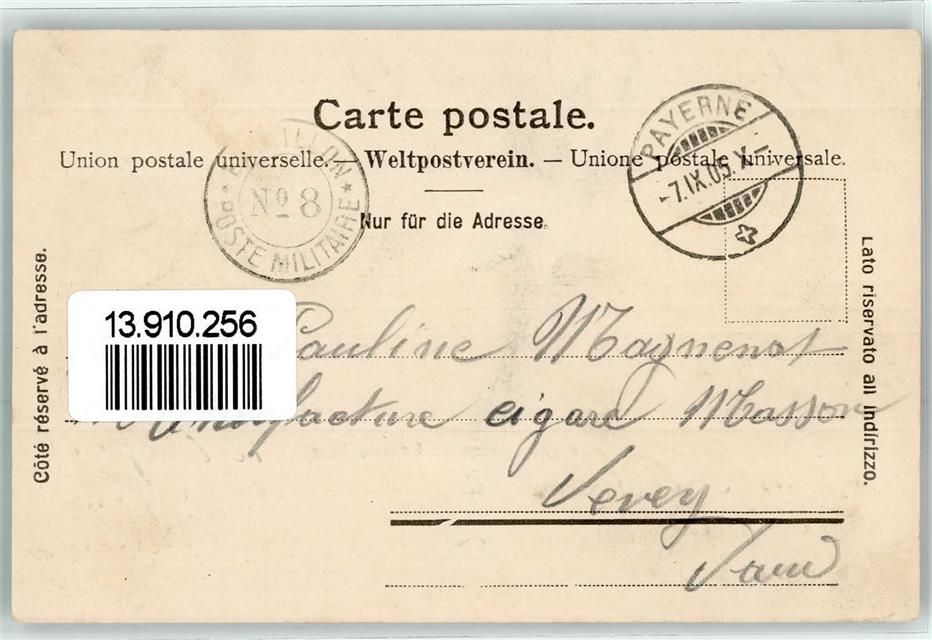 Carte postale.
Union postale universelle. — Weltpostverein. — Unione postale universale.
Nur für die Adresse.
Côté réservé à l'adresse.
Lato riservato all indirizzo.
POSTE MILITAIRE
No 8
PAYERNE
-7.IX.05.X-
13.910.256
Pauline Magnenat
Manufacture cigare Masson
Vevey
Vaud